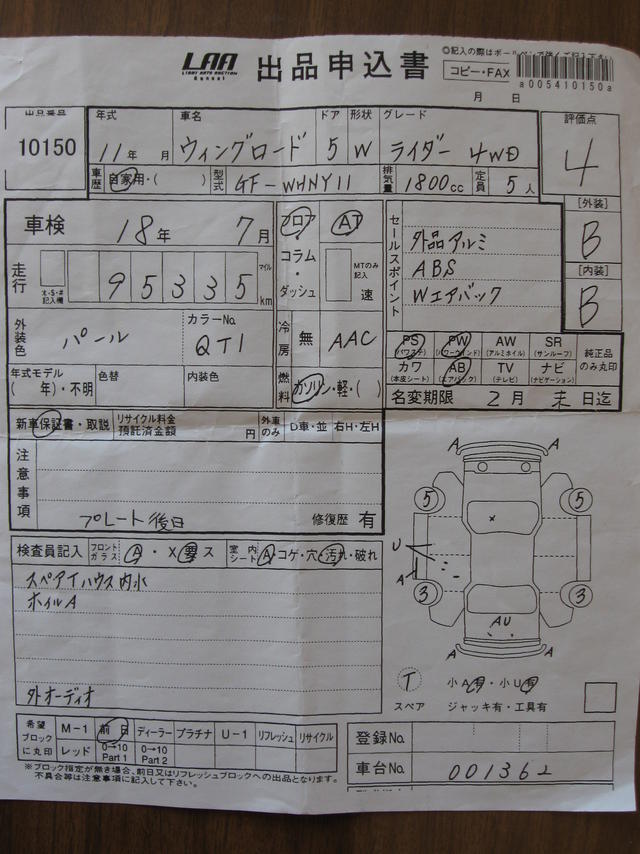 LAA
LIGHT AUTO AUCTION
Kansai
出品申込書
◎記入の際はボールペンで
コピー・FAX
a005410150a
月 日
出品番号
10150
年式 車名 ドア 形状 グレード 評価点
11年 月 ウィングロード 5 W ライダー 4WD 4
車歴 自家用・( ) 型式 GF-WHNY11 排気量 1800cc 定員 5人
[外装]
B
[内装]
B
車検 18年 7月
フロア・コラム・ダッシュ
AT
MTのみ記入
速
セールスポイント
外品アルミ
ABS
Wエアバック
走行 95335 マイル km
外装色 パール カラーNo. QT1
冷房 無 AAC
PS (パワステ) PW (パワーウインド) AW (アルミホイル) SR (サンルーフ)
カワ (本皮シート) AB (エアバック) TV (テレビ) ナビ (ナビゲーション)
純正品のみ丸印
年式モデル ( 年)・不明 色替 内装色
燃料 ガソリン・軽・( )
名変期限 2月 末日迄
新車保証書・取説 リサイクル料金預託済金額 円 外車のみ D車・並 右H・左H
注意事項
プレート後日
修復歴 有
検査員記入 フロントガラス A・X要ス 室内シート A・コゲ・穴・汚れ・破れ
スペアイハウス内水
ホイルA
外オーディオ
A A
5 5
U
A
3 3
AU
A A
T 小A有・小U有
スペア ジャッキ有・工具有
希望ブロックに丸印
M-1 前日 ディーラー プラチナ U-1 リフレッシュ リサイクル
レッド 0→10 Part 1 0→10 Part 2
※ブロック指定が無き場合、前日又はリフレッシュブロックへの出品となります。
不具合等は注意事項に記入して下さい。
登録No.
車台No. 001362